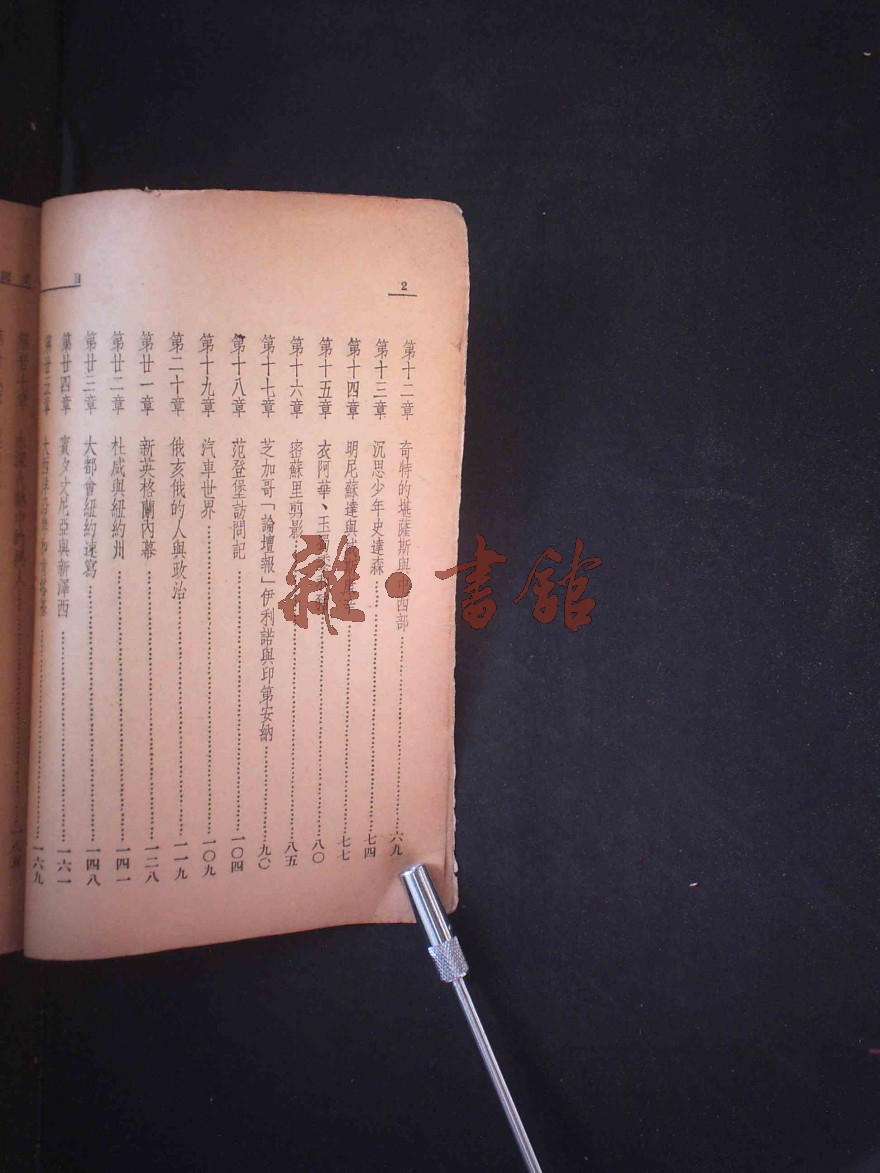 2
第十二章 奇特的堪薩斯與中西部 六九
第十三章 沉思少年史達森 七四
第十四章 明尼蘇達與 七七
第十五章 衣阿華、玉 八〇
第十六章 密蘇里剪影 八五
第十七章 芝加哥「論壇報」伊利諾與印第安納 九〇
第十八章 范登堡訪問記 一〇四
第十九章 汽車世界 一〇九
第二十章 俄亥俄的人與政治 一一九
第廿一章 新英格蘭內幕 一二八
第廿二章 杜威與紐約州 一四一
第廿三章 大都會紐約速寫 一四八
第廿四章 賓夕尼亞與新澤西 一六一
第廿五章 大西洋 一六九
目
一八五
雜·書館